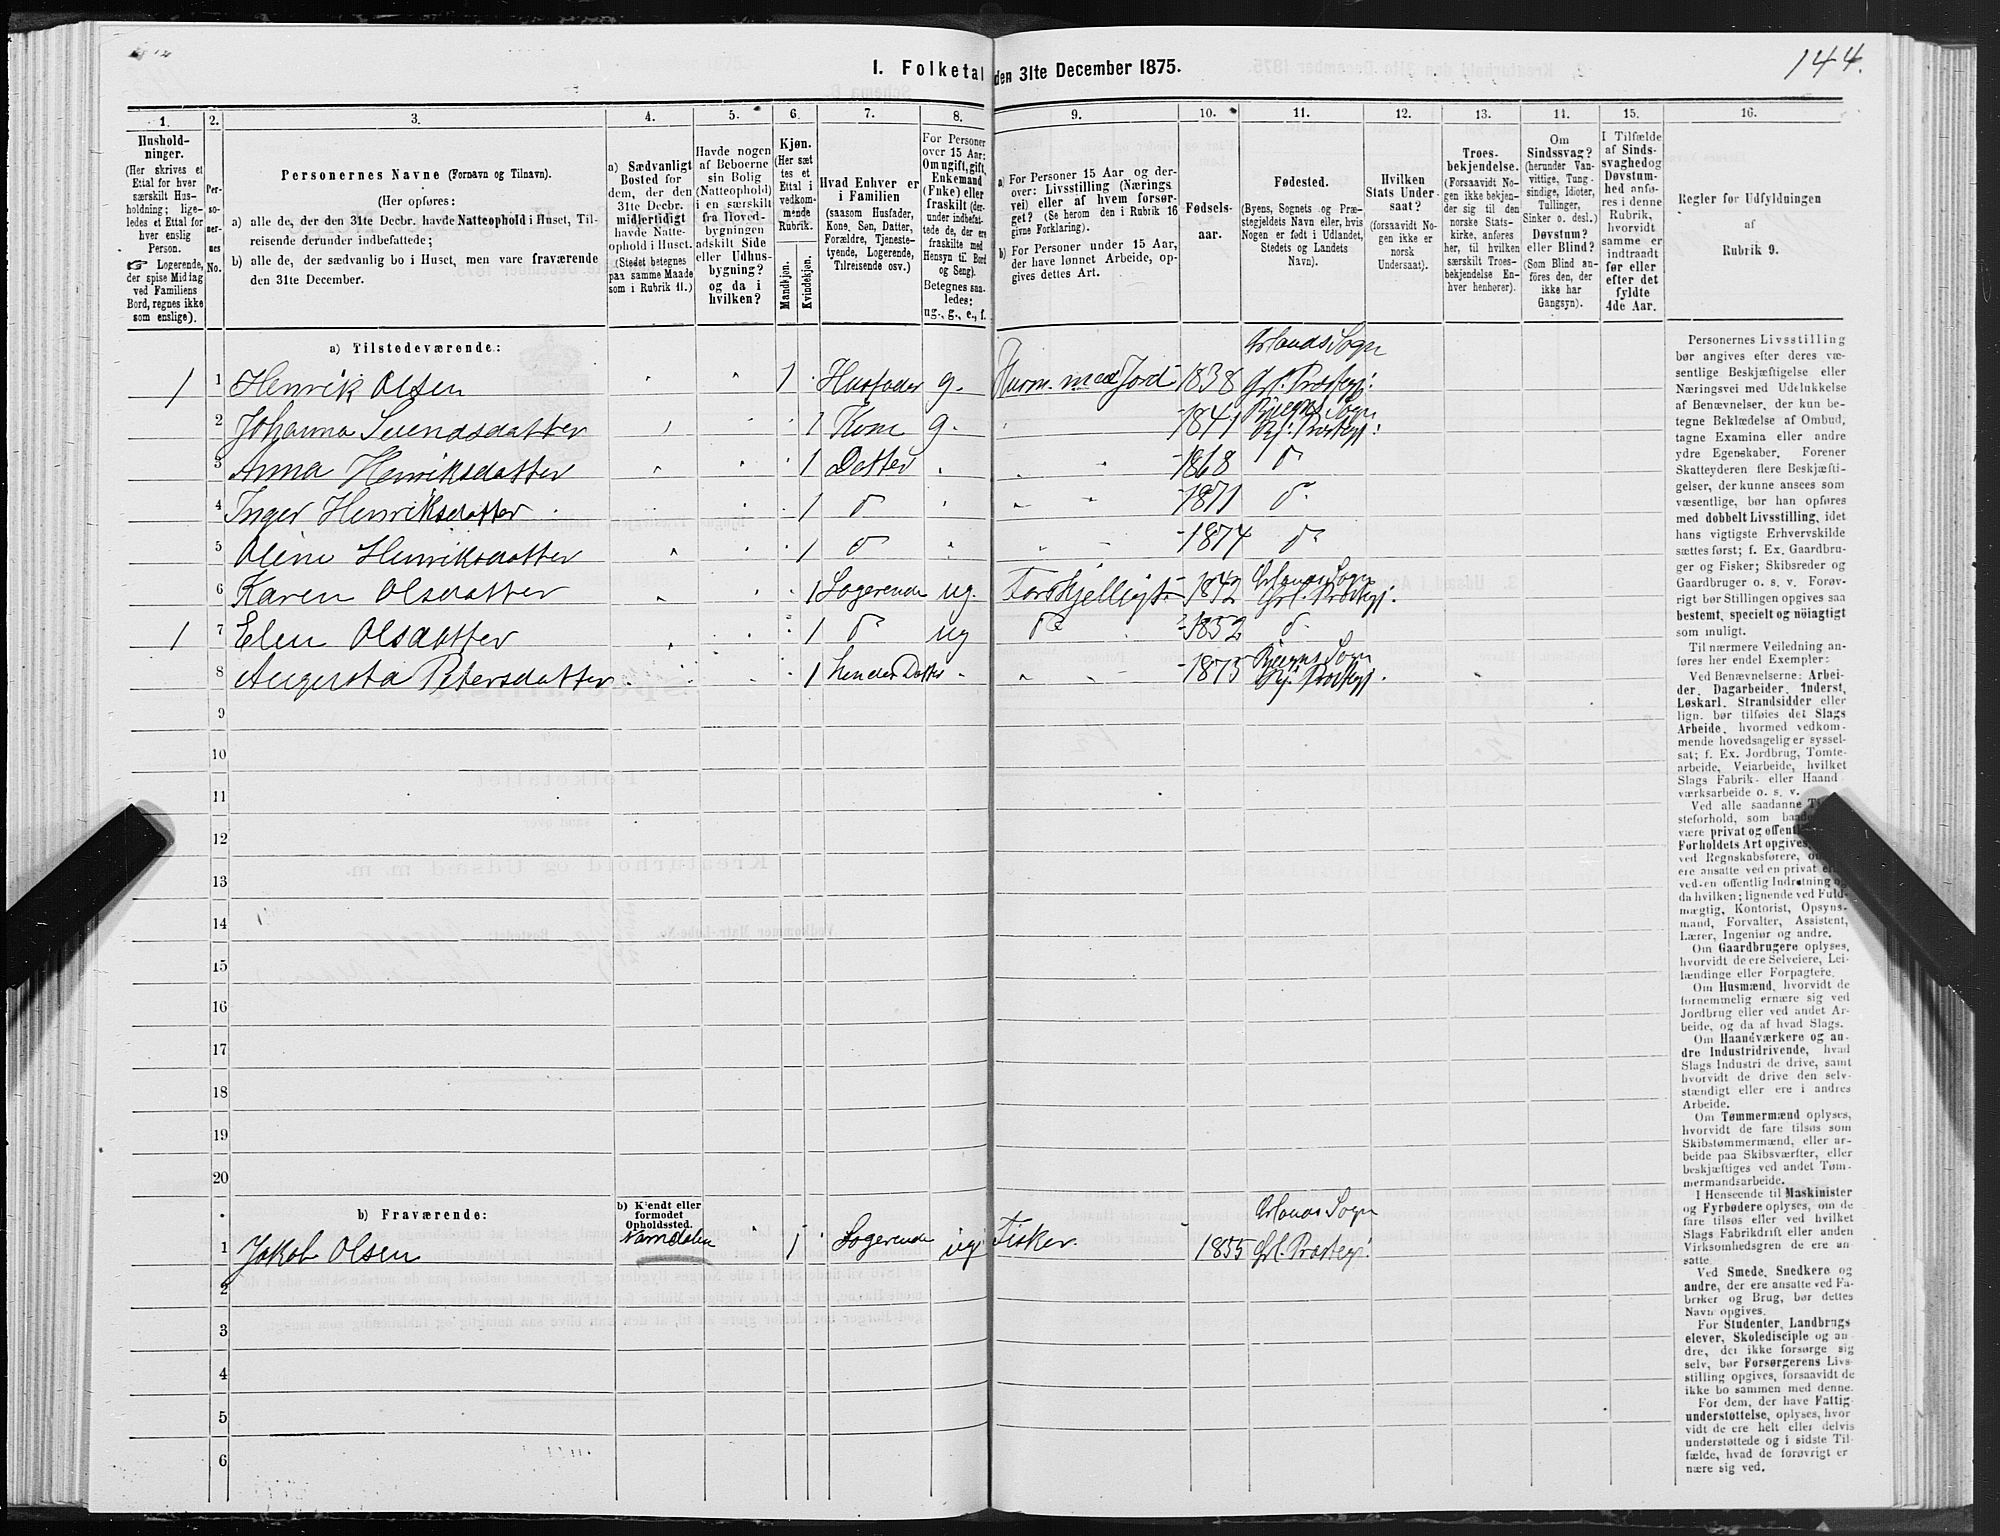 144.
I. Folketal den 31te December 1875.
1. 2. 3. 4. 5. 6. 7. 8. 9. 10. 11. 12. 13. 14. 15. 16.
Hushold-
ninger.
(Her skrives et
Ettal for hver
særskilt Hus-
holdning; lige-
ledes et Ettal for
hver enslig
Person.
☞ Logerende,
der spise Middag
ved Familiens
Bord, regnes ikke
som enslige).
Per-
so-
ner-
nes
No.
Personernes Navne (Fornavn og Tilnavn).
(Her opføres:
a) alle de, der den 31te Decbr. havde Natteophold i Huset, Til-
reisende derunder indbefattede;
b) alle de, der sædvanlig bo i Huset, men vare fraværende
den 31te December.
a) Sædvanligt
Bosted for
dem, der den
31te Decbr.
midlertidigt
havde Natte-
ophold i Huset.
(Stedet betegnes
paa samme Maade
som i Rubrik 11.)
Havde nogen
af Beboerne
sin Bolig
(Natteophold)
i en særskilt
fra Hoved-
bygningen
adskilt Side
eller Udhus-
bygning?
og da i
hvilken?
Kjøn.
(Her sæt-
tes et
Ettal i
vedkom-
mende
Rubrik.
Mandkjøn.
Kvindekjøn.
Hvad Enhver er
i Familien
(saasom Husfader,
Kone, Søn, Datter,
Forældre, Tjeneste-
tyende, Logerende,
Tilreisende osv.)
For Personer
over 15 Aar:
Om ugift, gift,
Enkemand
(Enke) eller
fraskilt (der-
under indbefat-
tede de, der ere
fraskilte med
Hensyn til Bord
og Seng).
Betegnes saa-
ledes:
ug., g., e., f.
a) For Personer 15 Aar og der-
over: Livsstilling (Nærings-
vei) eller af hvem forsør-
get? (Se herom den i Rubrik 16
givne Forklaring).
b) For Personer under 15 Aar,
der have lønnet Arbeide, op-
gives dettes Art.
Fødsels-
aar.
Fødested.
(Byens, Sognets og Præ-
stegjeldets Navn eller, hvis
Nogen er født i Udlandet,
Stedets og Landets
Navn).
Hvilken
Stats Under-
saat?
(forsaavidt No-
gen ikke er
norsk
Undersaat).
Troes-
bekjendelse.
(Forsaavidt No-
gen ikke bekjen-
der sig til den
norske Stats-
kirke, anføres
her, til hvilken
særskilt Troes-
bekjendelse En-
hver henhører).
Om
Sindssvag?
(herunder Van-
vittige, Tung-
sindige, Idioter,
Tullinger,
Sinker o. desl.)
Døvstum?
eller Blind?
(Som Blind an-
føres den, der
ikke har
Gangsyn).
I Tilfælde
af Sinds-
svaghed og
Døvstum-
hed anfø-
res i denne
Rubrik,
hvorvidt
samme er
indtraadt
før eller
efter det
fyldte
4de Aar.
Regler for Udfyldningen
af
Rubrik 9.
a) Tilstedeværende:
Ørlands Sogn
1 1 Henrik Olsen 1 Husfader g. Husm. med Jord 1838 Ørl. Præstegj:
2 Johanna Svendsdatter 1 Kone g. 1841 Bjugns Sogn Bj. Præstegj:
3 Anna Henriksdatter 1 Datter 1868 do
4 Inger Henriksdatter 1 do 1871 do
5 Oline Henriksdatter 1 do 1874 do
6 Karen Olsdatter 1 Logerende ug. Forskjelligt 1842 Ørlands Sogn Ørl. Præstegj.
1 7 Elen Olsdatter 1 do ug do 1852 do
8 Augusta Petersdatter 1 hendes Datter 1875 Bjugns Sogn Bj. Præstegj.
9
10
11
12
13
14
15
16
17
18
19
20
b) Fraværende:
b) Kjendt eller
formodet
Opholdssted.
Ørlands Sogn
1 Jakob Olsen Namdalen 1 Logerende ug Fisker 1855 Ørl. Præstegj.
2
3
4
5
6
Personernes Livsstilling
bør angives efter deres væ-
sentlige Beskjæftigelse eller
Næringsvei med Udelukkelse
af Benævnelser, der kun be-
tegne Beklædelse af Ombud,
tagne Examina eller andre
ydre Egenskaber. Forener
Skatteyderen flere Beskjæfti-
gelser, der kunne ansees som
væsentlige, bør han opføres
med dobbelt Livsstilling, idet
hans vigtigste Erhvervskilde
sættes først; f. Ex. Gaardbru-
ger og Fisker; Skibsreder og
Gaardbruger o. s. v. Forøv-
rigt bør Stillingen opgives saa
bestemt, specielt og nöiagtigt
som muligt.
Til nærmere Veiledning an-
føres her endel Exempler:
Ved Benævnelserne: Arbei-
der, Dagarbeider, Inderst,
Løskarl, Strandsidder eller
lign. bør tilføies det Slags
Arbeide, hvormed vedkom-
mende hovedsagelig er syssel-
sat; f. Ex. Jordbrug, Tomte-
arbeide, Veiarbeide, hvilket
Slags Fabrik- eller Haand-
værksarbeide o. s. v.
Ved alle saadanne
steforhold, som
være privat og
Forholdets Art opgives,
ved Regnskabsførere,
ere ansatte ved en privat
ved en offentlig Indretning og
da hvilken; lignende ved Fuld-
mægtig, Kontorist, Opsyns-
mand, Forvalter, Assistent,
Lærer, Ingeniør og andre.
Om Gaardbrugere oplyses,
hvorvidt de ere Selveiere, Lei-
lændinge eller Forpagtere.
Om Husmænd, hvorvidt de
fornemmelig ernære sig ved
Jordbrug eller ved andet Ar-
beide, og da af hvad Slags.
Om Haandværkere og an-
dre Industridrivende, hvad
Slags Industri de drive, samt
hvorvidt de drive den selv-
stændigt eller ere i andres
Arbeide.
Om Tømmermænd oplyses,
hvorvidt de fare tilsøs som
Skibstømmermænd, eller ar-
beide paa Skibsværfter, eller
beskjæftiges ved andet Tøm-
mermandsarbeide.
I Henseende til Maskinister
og Fyrbødere oplyses, om de
fare tilsøs eller ved hvilket
Slags Fabrikdrift eller anden
Virksomhedsgren de ere an-
satte.
Ved Smede, Snedkere og
andre, der ere ansatte ved Fa-
briker og Brug, bør dettes
Navn opgives.
For Studenter, Landbrugs-
elever, Skoledisciple og an-
dre, der ikke forsørge sig
selv, bør Forsørgerens Livs-
stilling opgives, forsaavidt de
ikke bo sammen med denne.
For dem, der have Fattig-
understøttelse, oplyses, hvor-
vidt de ere helt eller delvis
understøttede og i sidste Til-
fælde, hvad de forøvrigt er-
nære sig ved.